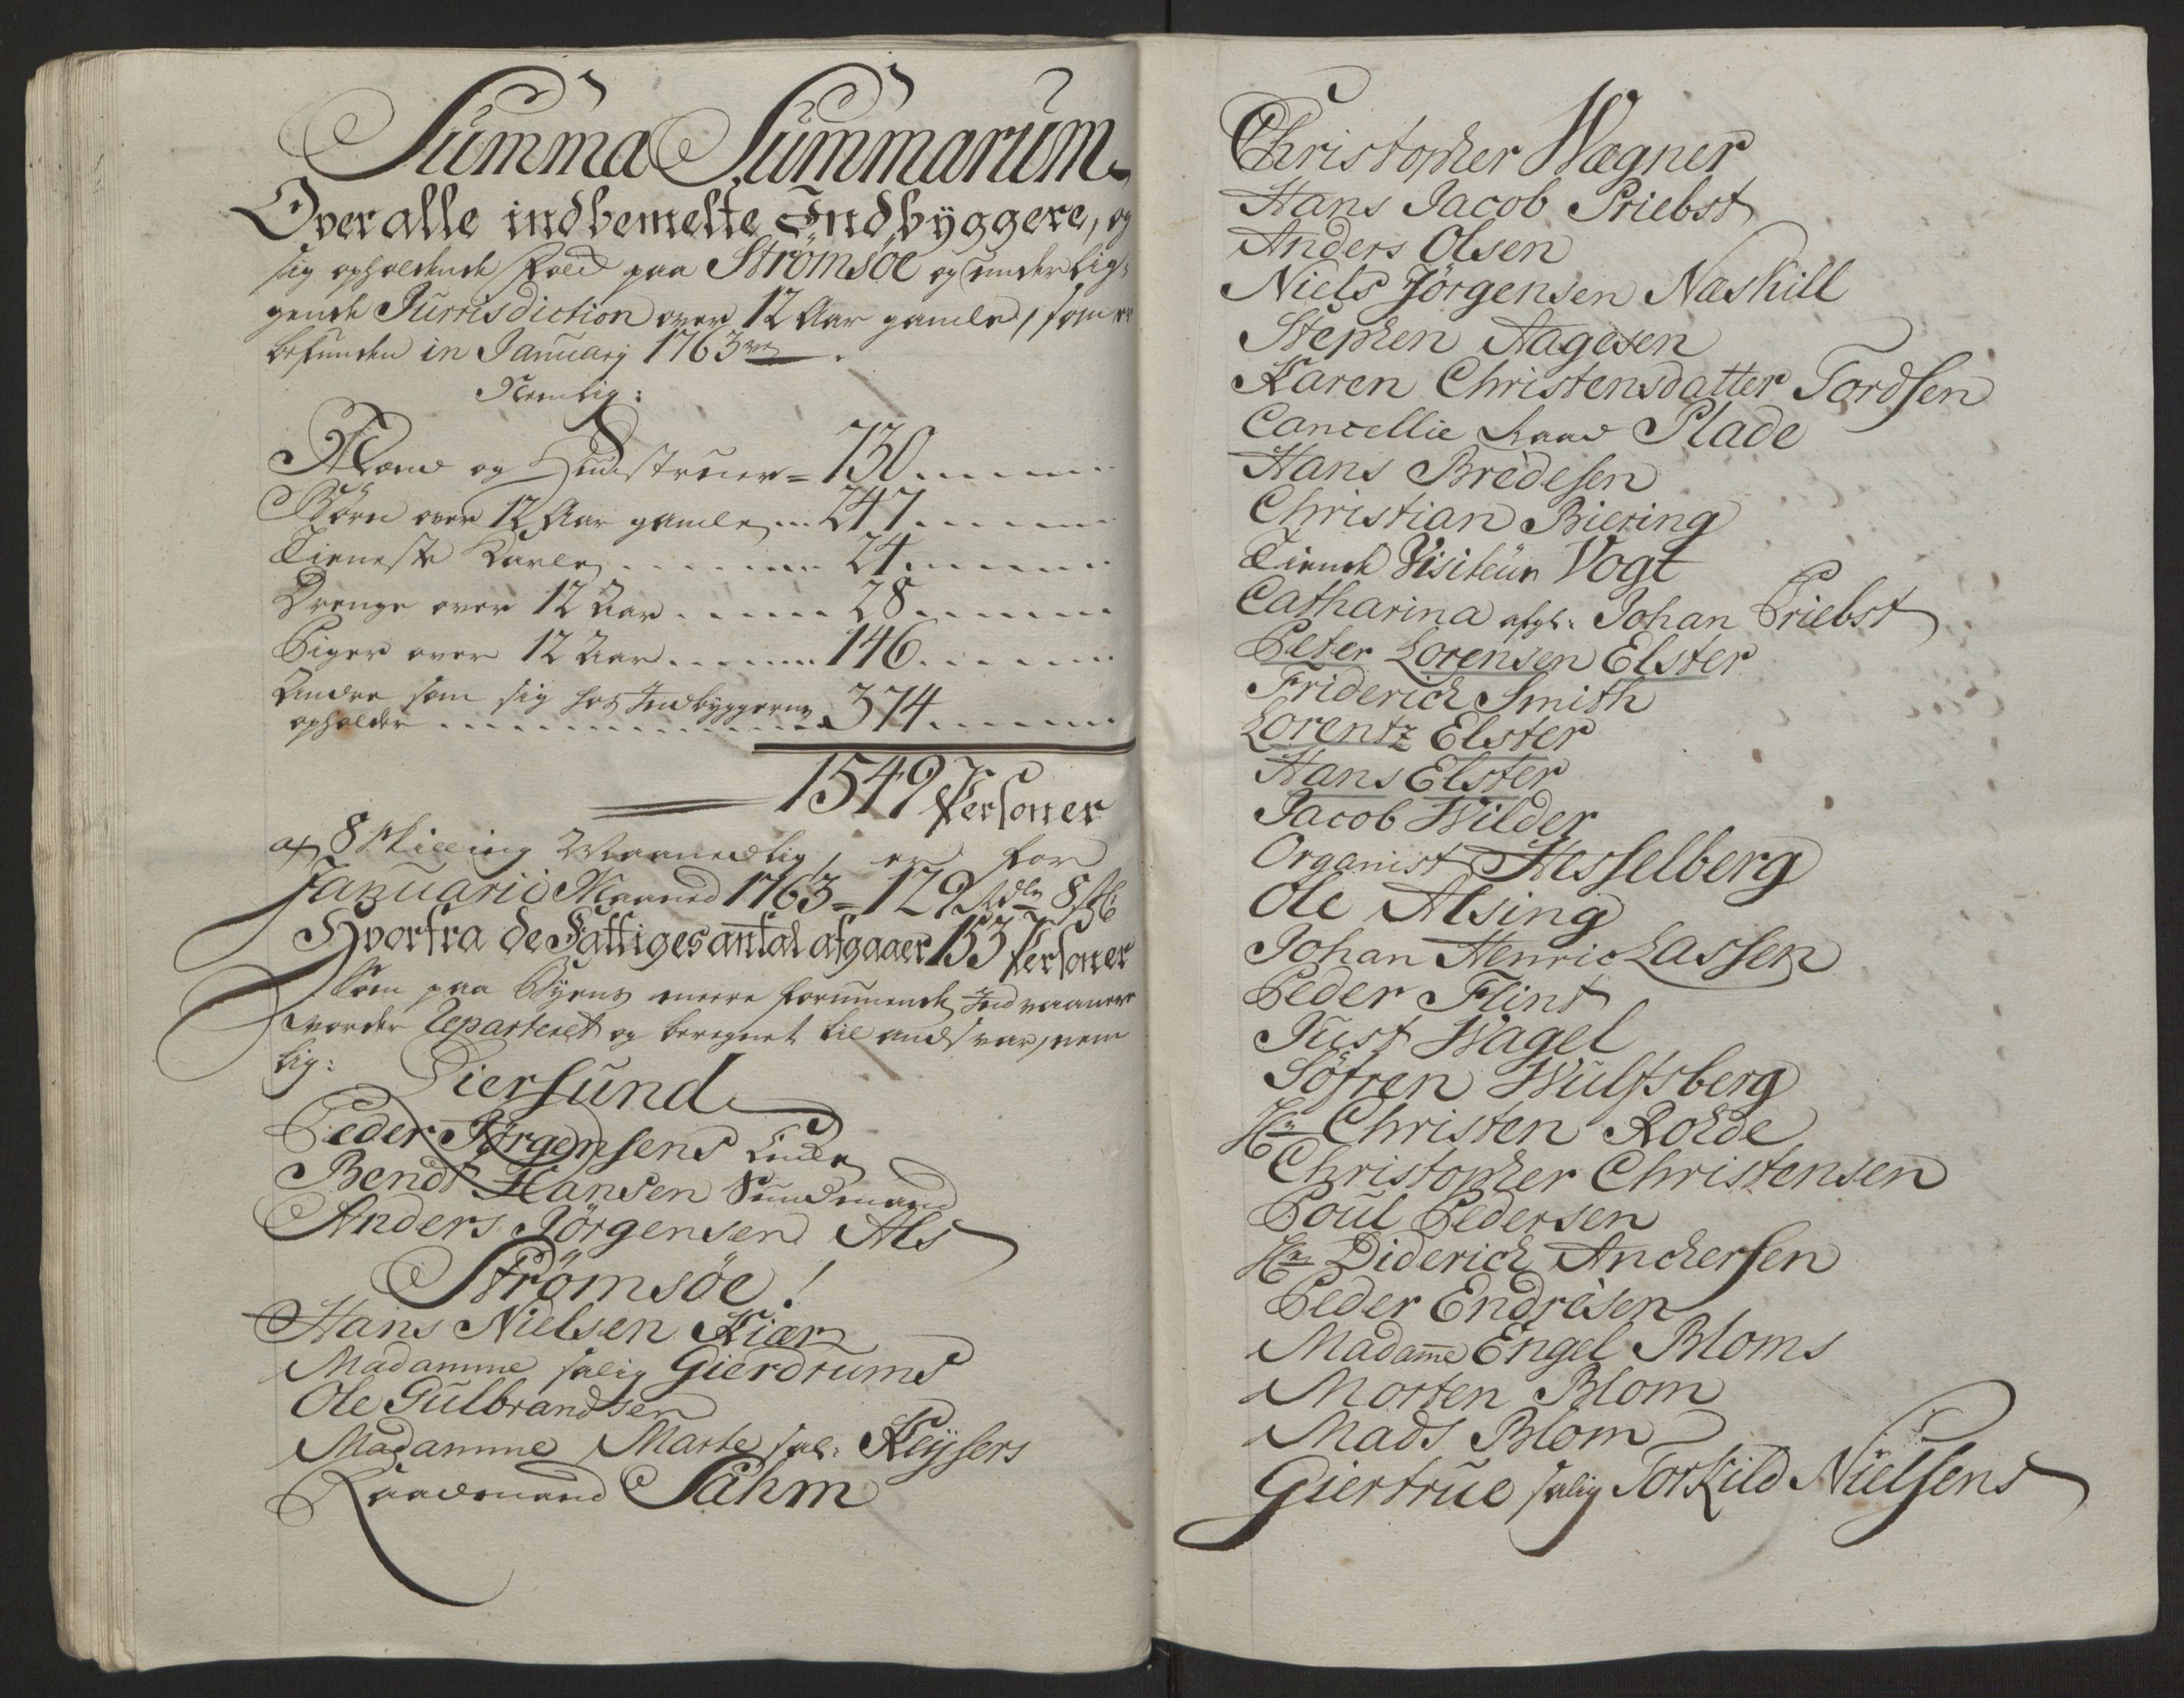 Summa Summarum
Over alle indbemelte Indbyggere, og
sig opholdende Folck paa Strömsöe og underlig-
gende Jurrisdiction over 12 Aar gamle, som er
befunden in January 1763
Nemlig:
Mænd og Hustruer = 730
Börn over 12 Aar gamle 247
Tieneste Karle 24
Drenge over 12 Aar 28
Piger over 12 Aar 146
Andre som sig hos Indbyggerne
opholder 374
1549 Personer
af 8 Skilling Maanedlig, er for
Januarii Maaned 1763 = 129 Rdlr 8 s
Hvorfra de Fattiges antal afgaaer 153 Personer
Som paa Byens meere formuende Indvaanere
vorder Reparteret og beregnet til andsvar, nem
lig:
Tiersund
Peder Jörgensens Encke
Bendt Hansen Sundmand
Anders Jörgensen Als
Strömsöe!
Hans Nielsen Kiær
Madamme salig Gierdrums
Ole Gulbrandsen
Madamme Marte sal: Keysers
Raadmand Sahm
Christopher Wægner
Hans Jacob Priebst
Anders Olsen
Niels Jörgensen Næskill
Stephen Aagesen
Karen Christensdatter Tordsen
Cancellie Raad Plade
Hans Bredesen
Christian Biering
Tiende Visiteur Vogt
Catharina afgl. Johan Priebst
Peter Lorensen Elster
Friderich Smith
Lorentz Elster
Hans Elster
Jacob Wilder
Organist Hesselberg
Ole Alsing
Johan Henric Lassen
Peder Flint
Just Wagel
Söfren Wulfsberg
Hr Christen Rohde
Christopher Christensen
Poul Pedersen
Hr Diderich Anchersen
Peder Endresen
Madame Engel Bloms
Morten Blom
Mads Blom
Giertrue salig Torkild Nielsens